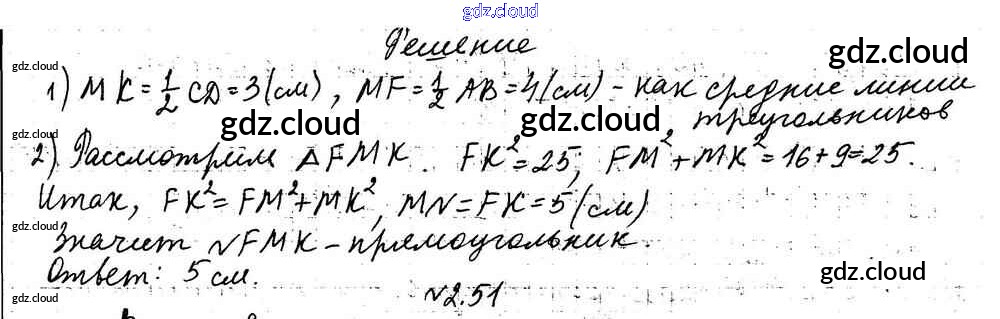 gdz.cloud
gdz.cloud
Решение
gdz.cloud
gdz.cloud
1) MK = 1/2 CD = 3 (см), MF = 1/2 AB = 4 (см) - как средние линии
треугольников
gdz.cloud
gdz.cloud
gdz.cloud
2) Рассмотрим △FMK. FK² = 25; FM² + MK² = 16 + 9 = 25.
Итак, FK² = FM² + MK², MN = FK = 5 (см)
gdz.cloud
Значит NFMK - прямоугольник.
Ответ: 5 см.
gdz.cloud
gdz.cloud
gdz.cloud
№2.51